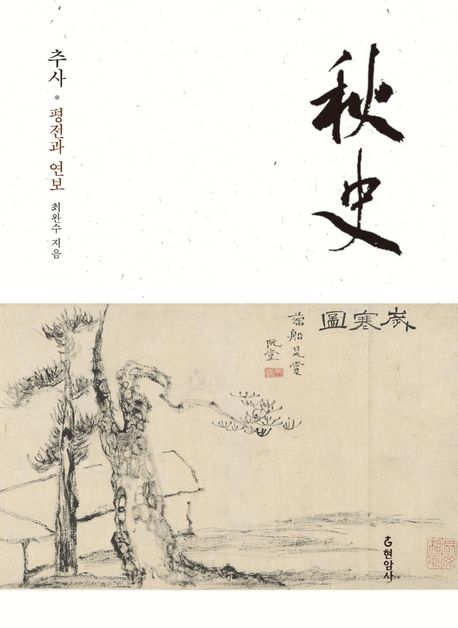 秋史
추사 • 평전과 연보 최완수 지음
歲寒圖
藕船是賞
阮堂
현암사